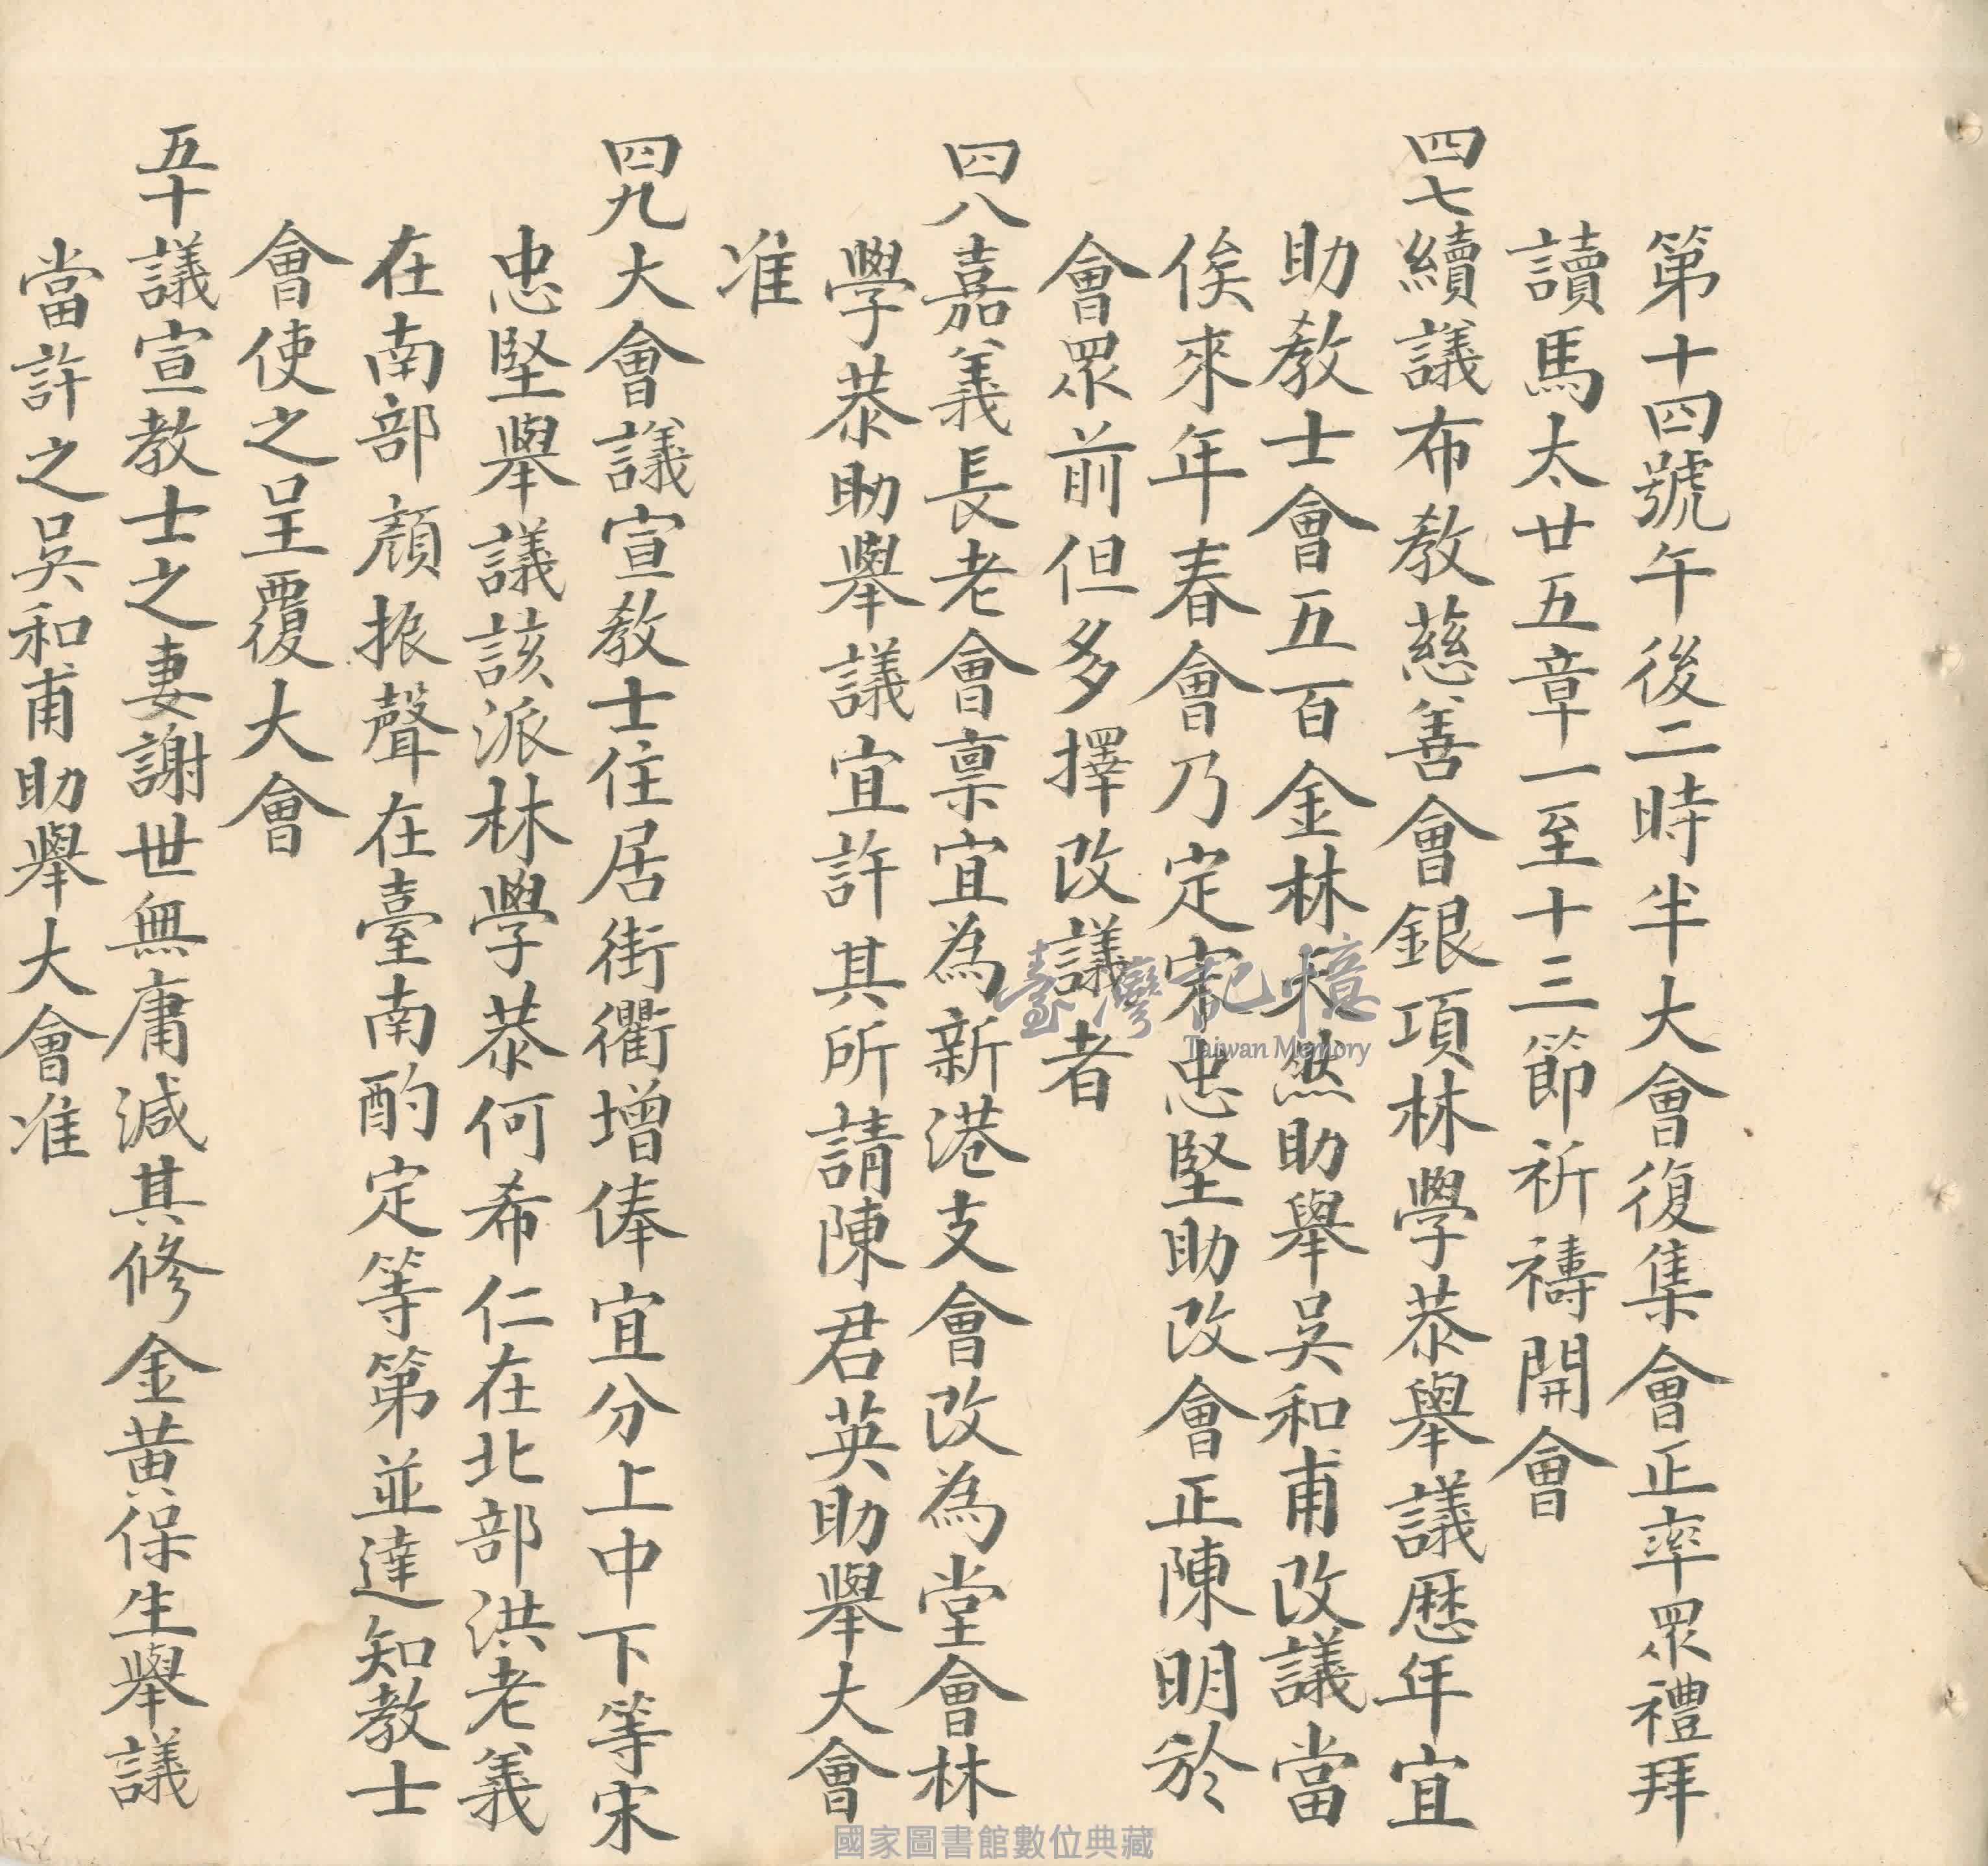 第十四號午後二時半大會復集會正率眾禮拜
讀馬太廿五章一至十三節祈禱開會
四七續議布教慈善會銀項林學恭舉議歷年宜
助教士會五百金林大煞助舉吳和甫改議當
俟來年春會乃定宋忠堅助改會正陳明於
會眾前但多擇改議者
四八嘉義長老會稟宜為新港支會改為堂會林
學恭助舉議宜許其所請陳君英助舉大會
准
四九大會議宣教士住居街衢增俸宜分上中下等宋
忠堅舉議該派林學恭何希仁在北部洪老義
在南部顏振聲在臺南酌定等第並達知教士
會使之呈覆大會
五十議宣教士之妻謝世無庸減其修金黃保生舉議
當許之吳和甫助舉大會准
臺灣記憶
Taiwan Memory
國家圖書館數位典藏